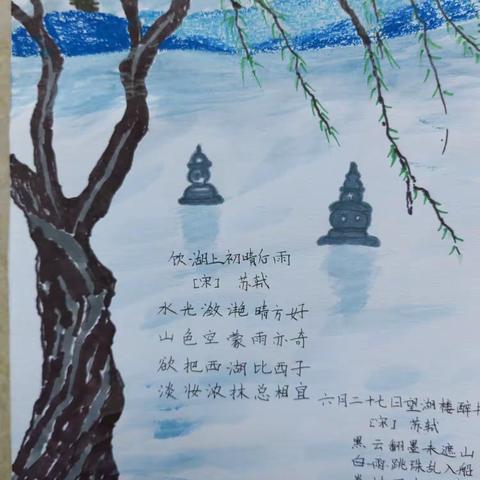 饮湖上初晴后雨
[宋] 苏轼
水光潋滟晴方好
山色空蒙雨亦奇
欲把西湖比西子
淡妆浓抹总相宜
六月二十七日望湖楼醉
[宋] 苏轼
黑云翻墨未遮山
白雨跳珠乱入船